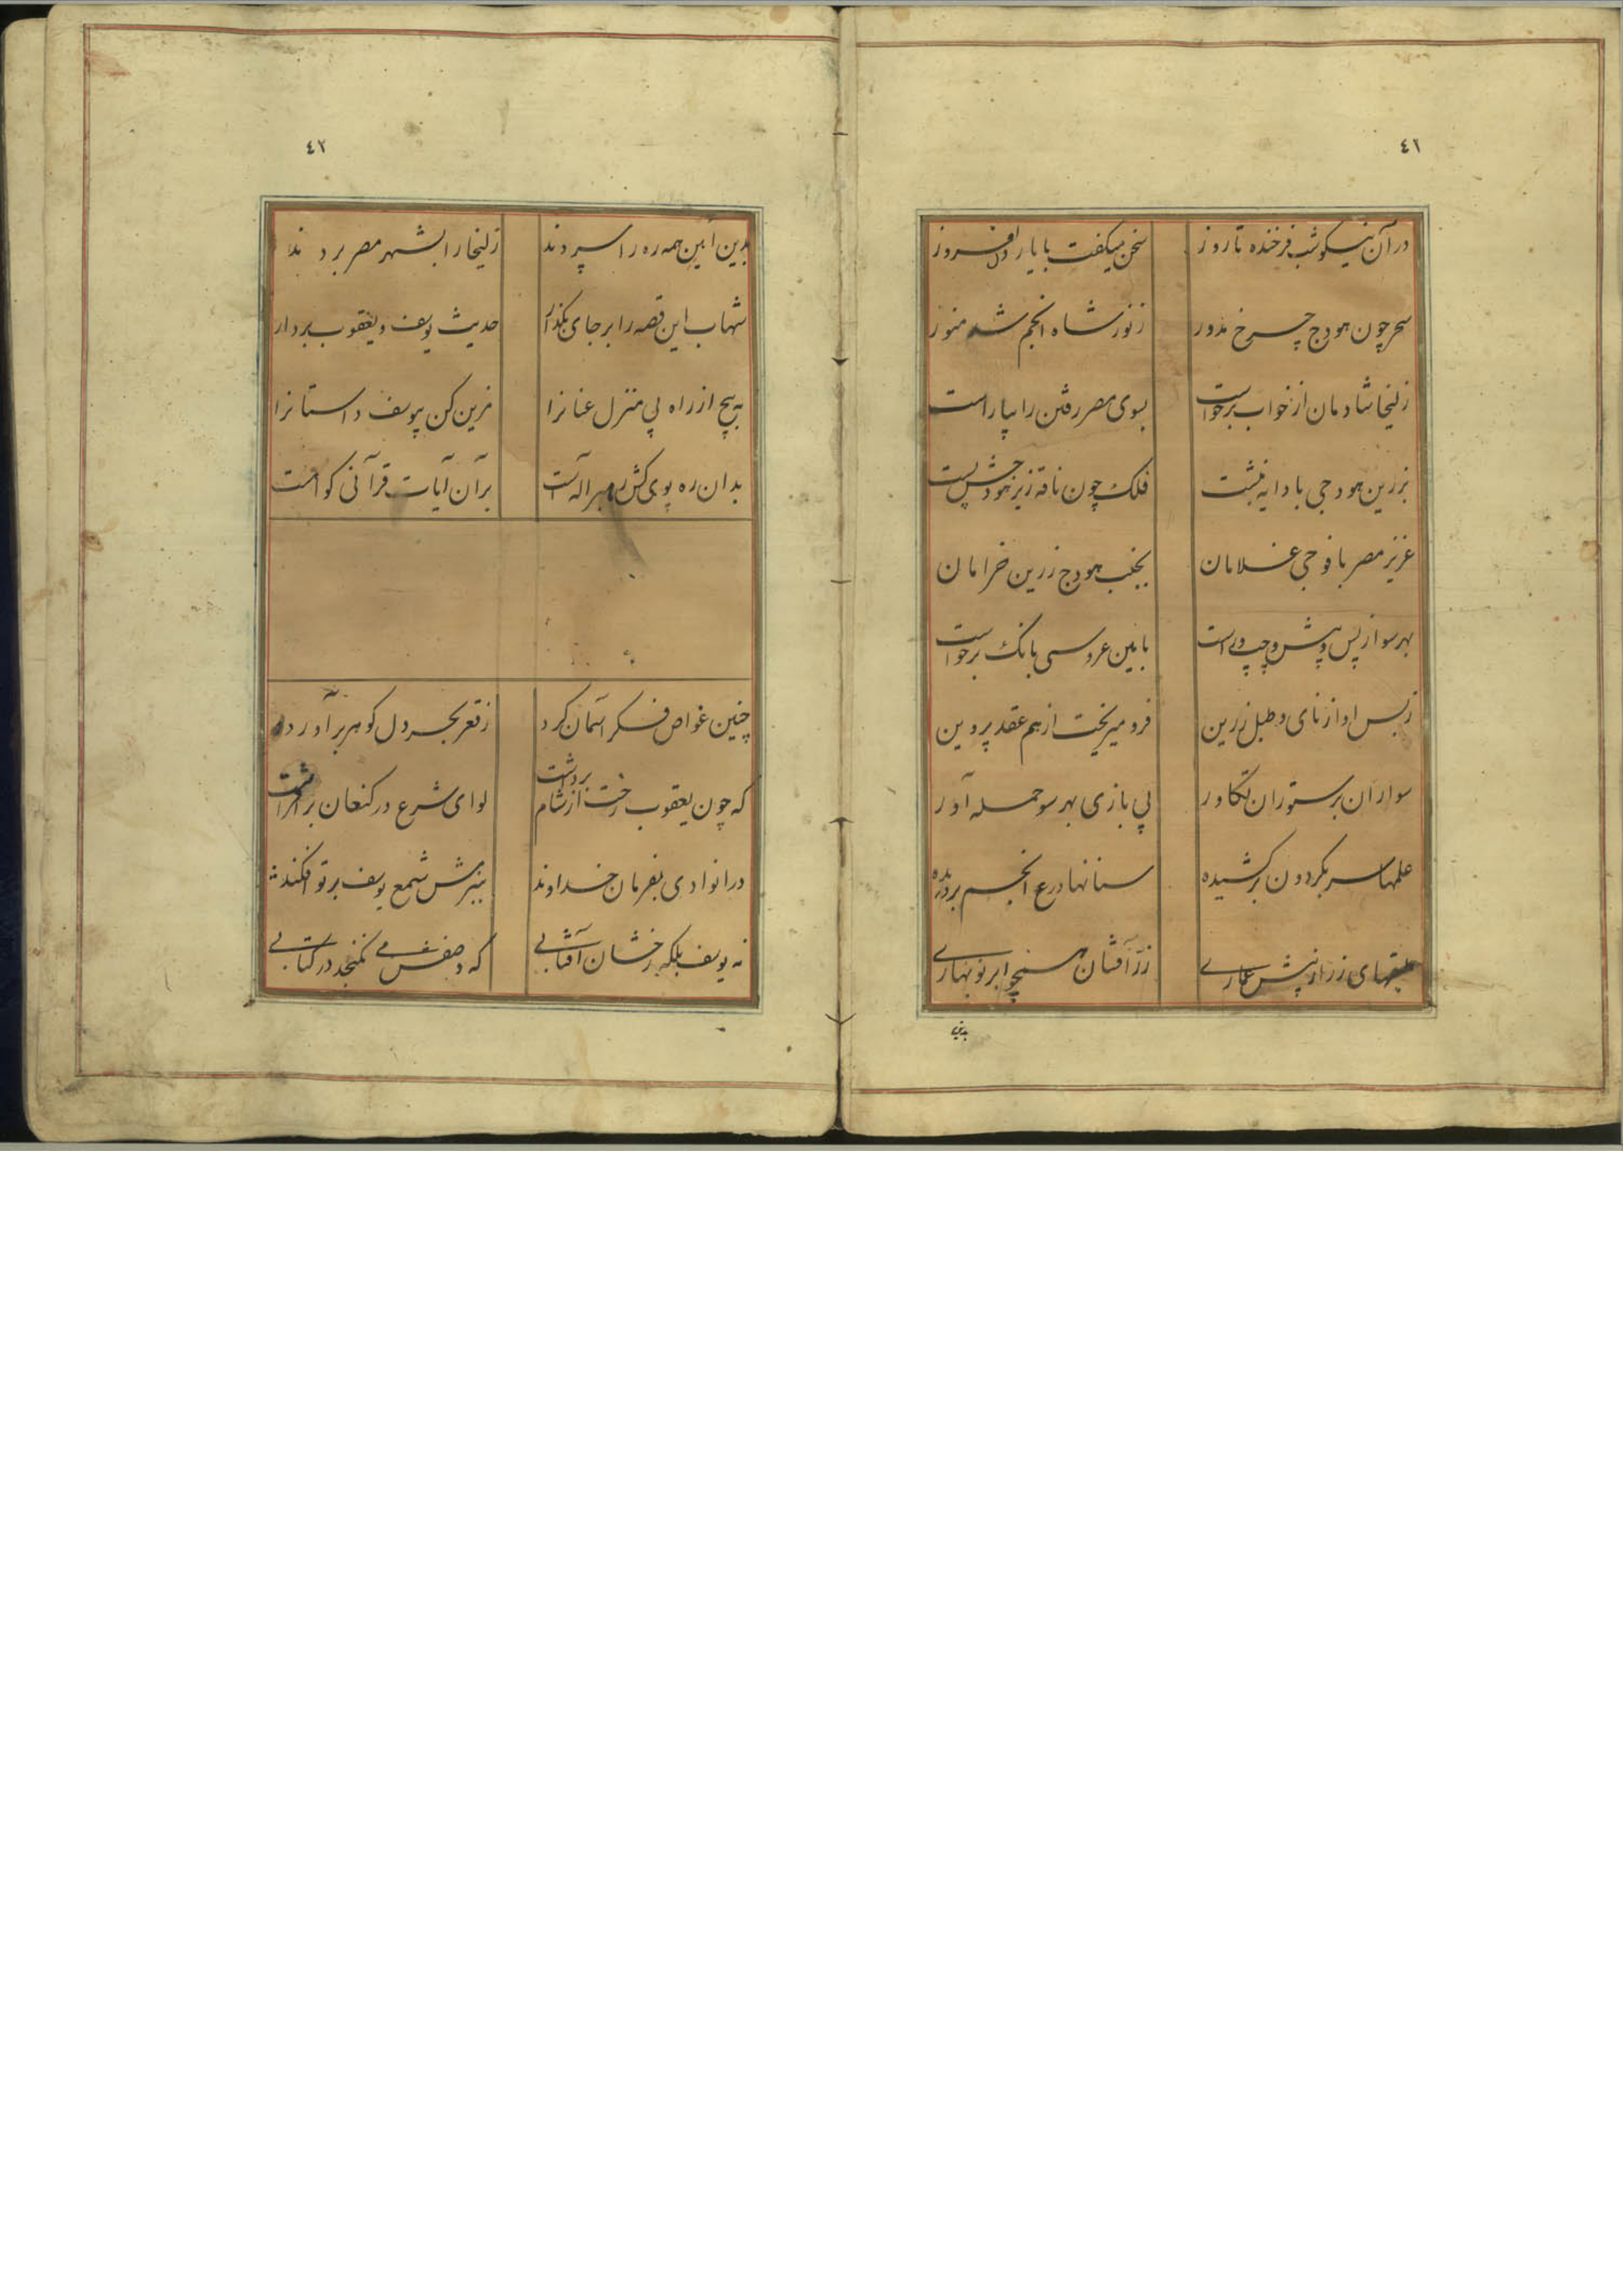 ٤١
در آن نیکو شب فرخنده تا روز سخن میگفت با یار دل‌افروز
سحر چون هودج چرخ مدور ز نور شاه انجم شد منور
زلیخا شادمان از خواب برخواست بسوی مصر رفتن را بیاراست
بزرین هودجی با دایه بنشست فلک چون ناقه زیر هودجش پست
عزیز مصر با فوجی غلامان بجنب هودج زرین خرامان
بهر سو از پس و پیش و چپ و راست بایین عروسی بانک برخواست
ز بس اواز نای و طبل زرین فرو میریخت از هم عقد پروین
سواران بر ستوران تکاور پی بازی بهر سو حمله آور
علمها سر بکردون بر کشیده سنانها درع انجم بر دریده
طبقهای زر از پیش عماری زر آفشان همچو ابر نوبهاری
بدین
٤٢
بدین آیین همه ره را سپردند زلیخا را بشهر مصر بردند
شهاب این قصه را بر جای بکذار حدیث یوسف و یعقوب بردار
به پیچ از راه پی منزل عنانرا مزین کن بیوسف داستانرا
بدان ره پوی کش رهبر اله است بر آن آیات قرآنی کواهست
چنین غواص فکر آسمان کرد ز قعر بحر دل کوهر برآورد
که چون یعقوب رخت از شام بردشت لوای شرع در کنعان برافراشت
در انوادی بفرمان خداوند ببزمش شمع یوسف پرتو افکند
نه یوسف بلکه رخشان آفتابی که وصفش می نکنجد در کتابی